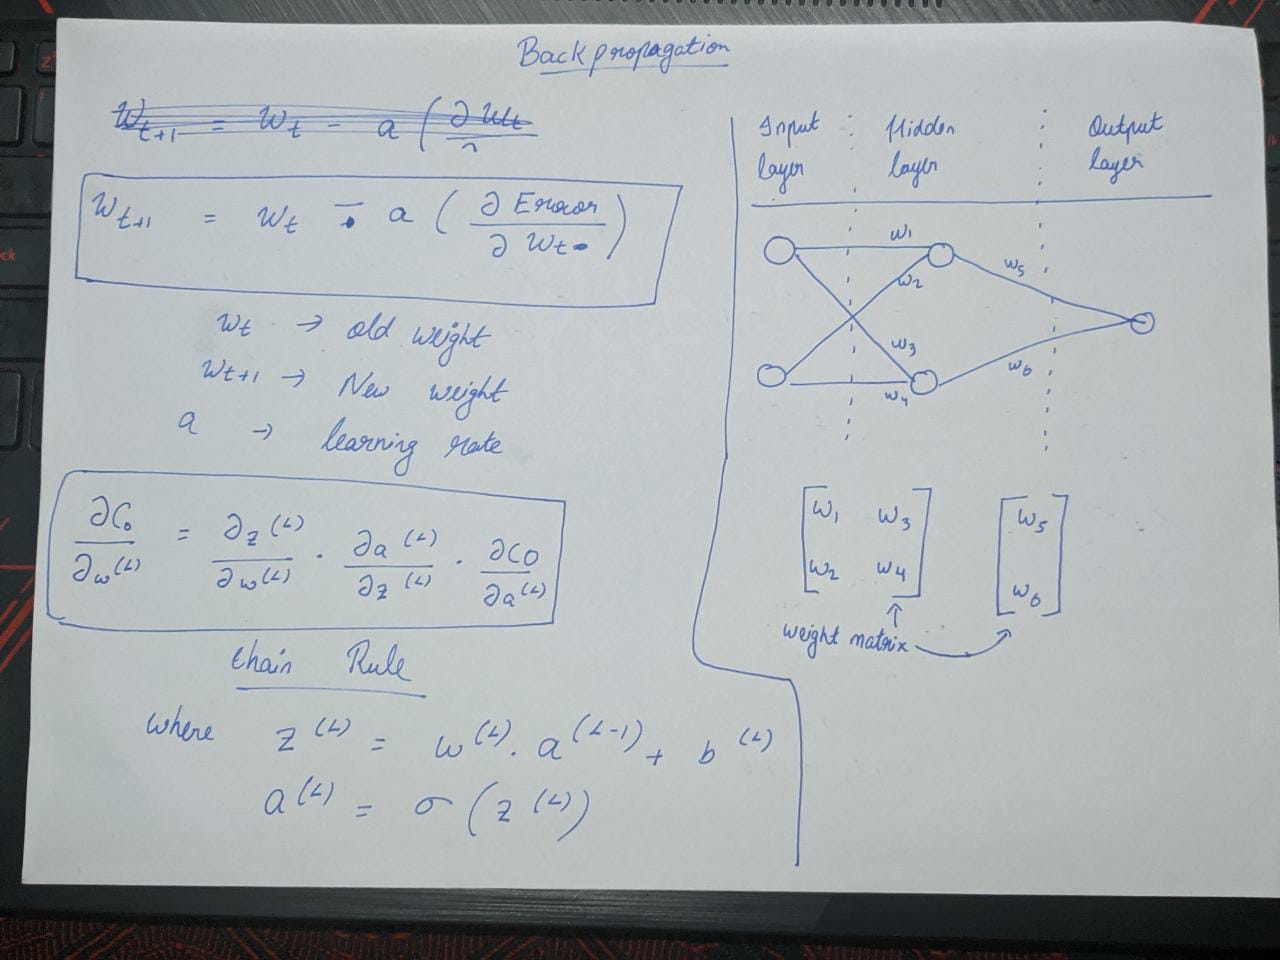 Backpropagation
W_{t+1} = W_t - a ( ∂ W_t
W_{t+1} = W_t - a ( ∂ Error / ∂ W_t )
W_t → old weight
W_{t+1} → New weight
a → learning rate
∂C₀/∂w^(L) = ∂z^(L)/∂w^(L) · ∂a^(L)/∂z^(L) · ∂C0/∂a^(L)
Chain Rule
where z^(L) = w^(L) . a^(L-1) + b^(L)
a^(L) = σ ( z^(L) )
Input layer
Hidden layer
Output layer
w1
w2
w3
w4
w5
w6
[ w1 w3
w2 w4 ]
[ w5
w6 ]
weight matrix